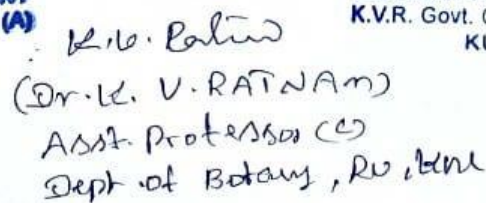 (A)
K.V.R. Govt.
K.V. Ratnam
(Dr. K. V. RATNAM)
Asst. Professor (C)
Dept of Botany, RU, KNL